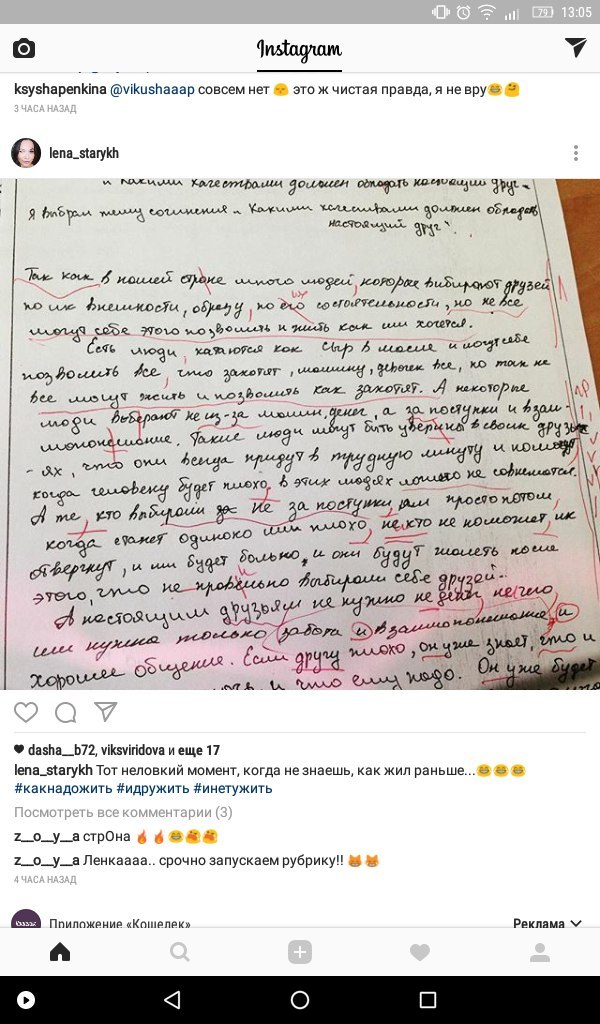 79 13:05
Instagram
ksyshapenkina @vikushaaap совсем нет это ж чистая правда, я не вру
3 ЧАСА НАЗАД
lena_starykh
и Какими качествами должен обладать настоящий друг.
Я выбрал тему сочинения „Какими качествами должен обладать
настоящий друг".
Так как в нашей строне много людей, которые вибирают друзей
по их внешности, образу, по его состоятельности, но не все
могут себе этого позволить и жить как им хочется.
Есть люди, катаются как сыр в масле и могут себе
позволить все, что захотят, машину, девочек все, но так не
все могут жить и позволить как захотят. А некоторые
люди выберают не из-за машин, денег, а за поступки и взаи-
мопонемание. Такие люди могут быть уверины в своих друзь
-ях, что они всегда придут в трудную минуту и помогут
когда человеку будет плохо, в этих людях можно не сомнематса.
А те, кто выбирали не за поступки, им просто потом,
когда станет одиноко или плохо, не кто не поможет, их
отвергнут, и им будет больно, и они будут жалеть после
этого, что не правельно выбирали себе друзей.
А настоящим друзьям не нужно не денег не чего
им нужна только забота и взаимопонемание, и
хорошее общение. Если другу плохо, он уже знает, что и
и что ему надо. Он уже будет
dasha__b72, viksviridova и еще 17
lena_starykh Тот неловкий момент, когда не знаешь, как жил раньше...
#какнадожить #идружить #инетужить
Посмотреть все комментарии (3)
z__o__y__a стрОна
z__o__y__a Ленкаааа.. срочно запускаем рубрику!!
4 ЧАСА НАЗАД
Приложение «Кошелек» Реклама